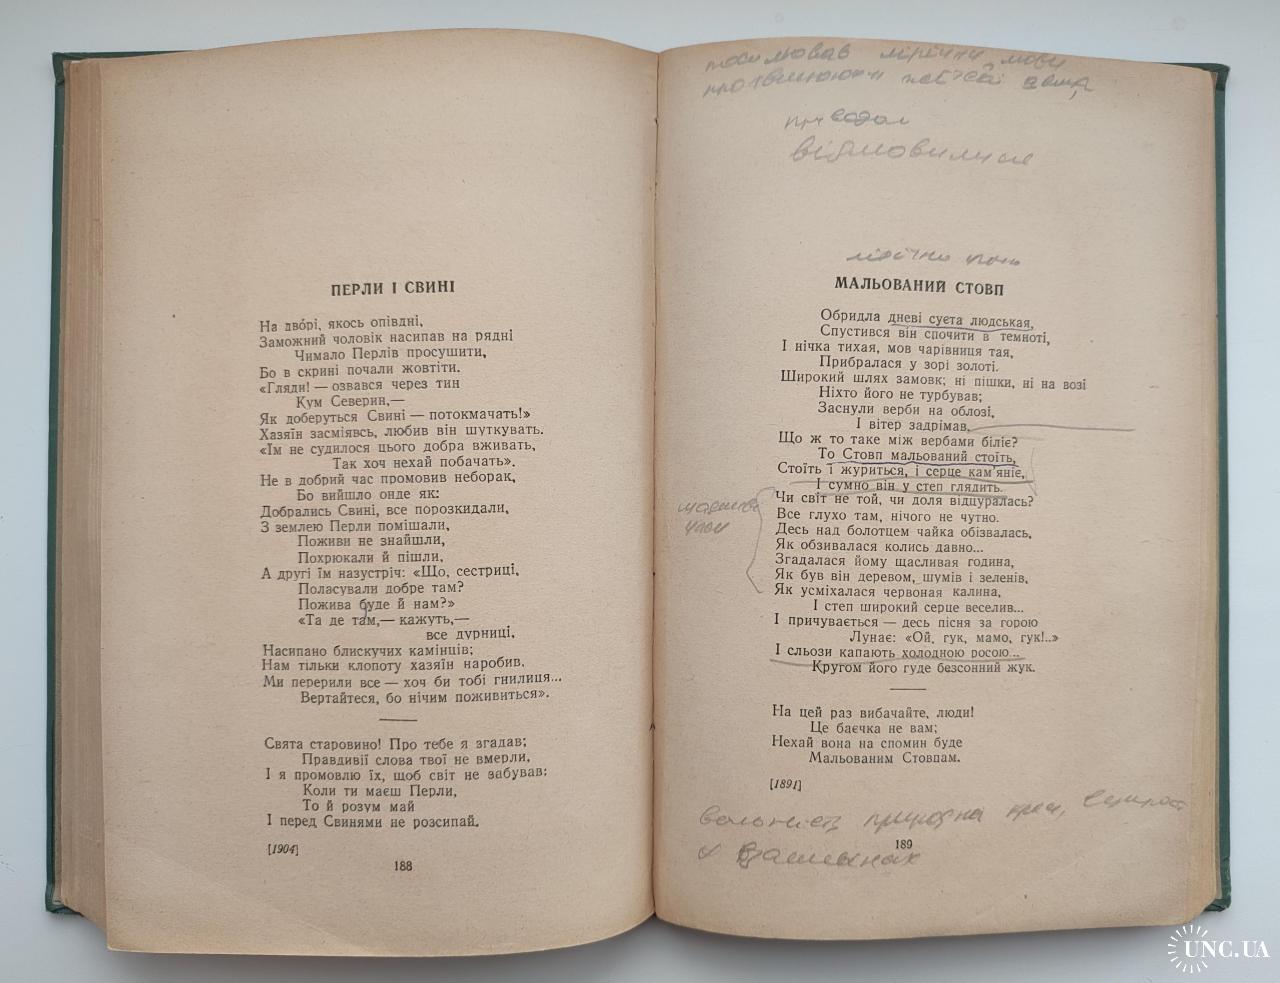 ПЕРЛИ І СВИНІ
На дво́рі, якось опівдні,
Заможний чоловік насипав на рядні
Чимало Перлів просушити,
Бо в скрині почали жовтіти.
«Гляди! — озвався через тин
Кум Северин,—
Як доберуться Свині — потокмачать!»
Хазяїн засміявсь, любив він шуткувать.
«Їм не судилося цього добра вживать,
Так хоч нехай побачать».
Не в добрий час промовив неборак,
Бо вийшло онде як:
Добрались Свині, все порозкидали,
З землею Перли помішали,
Поживи не знайшли,
Похрюкали й пішли,
А другі їм назустріч: «Що, сестриці,
Поласували добре там?
Пожива буде й нам?»
«Та де там,— кажуть,—
все дурниці,
Насипано блискучих камінців;
Нам тільки клопоту хазяїн наробив.
Ми перерили все — хоч би тобі гнилиця...
Вертайтеся, бо нічим поживиться».
Свята старовино! Про тебе я згадав;
Правдивії слова твої не вмерли,
І я промовлю їх, щоб світ не забував:
Коли ти маєш Перли,
То й розум май
І перед Свинями не розсипай.
[1904]
188
відмовилися
МАЛЬОВАНИЙ СТОВП
Обридла дневі суєта людськая,
Спустився він спочити в темноті,
І нічка тихая, мов чарівниця тая,
Прибралася у зорі золоті.
Широкий шлях замовк; ні пішки, ні на возі
Ніхто його не турбував;
Заснули верби на облозі,
І вітер задрімав,
Що ж то таке між вербами біліє?
То Стовп мальований стоїть,
Стоїть і журиться, і серце кам'яніє,
І сумно він у степ глядить.
Чи світ не той, чи доля відцуралась?
Все глухо там, нічого не чутно.
Десь над болотцем чайка обізвалась,
Як обзивалася колись давно...
Згадалася йому щасливая година,
Як був він деревом, шумів і зеленів,
Як усміхалася червоная калина,
І степ широкий серце веселив...
І причувається — десь пісня за горою
Лунає: «Ой, гук, мамо, гук!..»
І сльози капають холодною росою...
Кругом його гуде безсонний жук.
На цей раз вибачайте, люди!
Це баєчка не вам;
Нехай вона на спомин буде
Мальованим Стовпам.
[1891]
189
UNC.UA